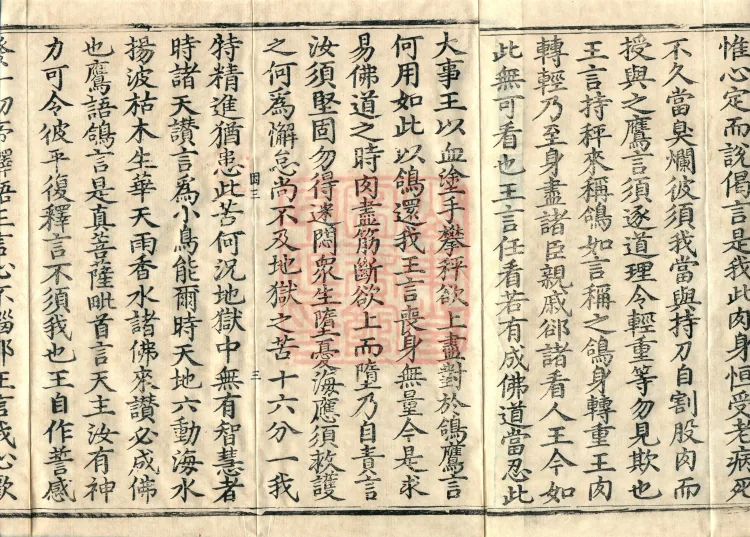 惟心定而說偈言是我此肉身恒受老病死
不久當臭爛彼須我當與持刀自割股肉而
授與之鷹言須逐道理令輕重等勿見欺也
王言持秤來稱鴿如言稱之鴿身轉重王肉
轉輕乃至身盡諸臣親戚郤諸看人王今如
此無可看也王言任看若有成佛道當忍此
大事王以血塗手攀秤欲上盡對於鴿鷹言
何用如此以鴿還我王言喪身無量今是求
易佛道之時肉盡筋斷欲上而墮乃自責言
汝須堅固勿得迷悶衆生墮憂海應須救護
之何為懈怠尚不及地獄之苦十六分一我
特精進猶患此苦何況地獄中無有智慧者
時諸天讚言為小鳥能爾時天地六動海水
揚波枯木生華天雨香水諸佛來讚必成佛
也鷹語鴿言是真菩薩毗首言天主汝有神
力可令彼平復釋言不須我也王自作誓感
王言心不惱耶王言我心歡